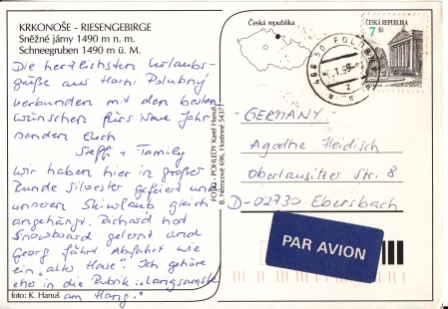 KRKONOŠE - RIESENGEBIRGE
Sněžné jámy 1490 m n. m.
Schneegruben 1490 m ü. M.
Die herzlichsten Urlaubs-
grüße aus Horni Polubný
verbunden mit den besten
Wünschen fürs Neue Jahr
senden Euch
Steffi + Family
Wir haben hier in großer
Runde Silvester gefeiert und
unseren Skiurlaub gleich
angehängt. Richard hat
Snowboard gelernt und
Georg fährt Abfahrt wie
ein "alter Hase". Ich gehöre
eher in die Rubrik: "Langsamste
am Hang."
foto: K. Hanuš
FOTO - POHLEDY Karel Hanuš
B. Němcové 696, Hostinné 54371
Česká republika
468 50 POLUBNÝ
ČESKÁ REPUBLIKA
7 Kč
GERMANY
Agathe Heidisch
Oberlausitzer Str. 8
D-02730 Ebersbach
PAR AVION